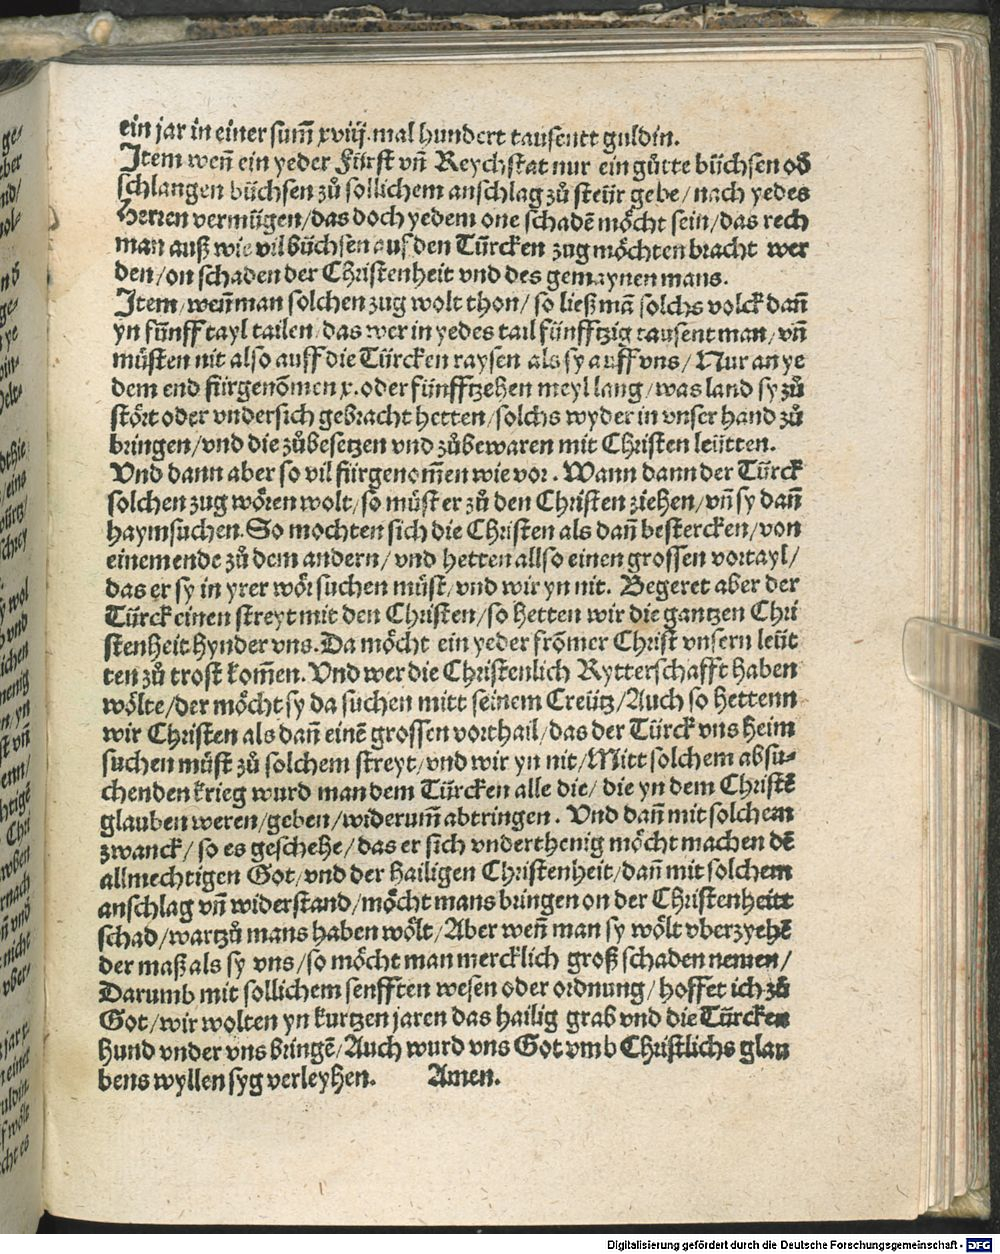 ein jar in einer sum̃ xviij. mal hundert tausentt guldin.
Item wen̄ ein yeder Fürst vn̄ Reychstat nur ein gůtte büchsen od̄
schlangen büchsen zů sollichem anschlag zů steür gebe/ nach yedes
Herren vermügen/ das doch yedem one schadē möcht sein/ das rech
man auß wie vil büchsen auf den Türcken zug möchten bracht wer
den/ on schaden der Christenheit vnd des gemaynen mans.
Item/ wen̄ man solchen zug wolt thon/ so ließ mā solchs volck dan̄
yn fünff tayl tailen/ das wer in yedes tail fünfftzig tausent man/ vn̄
müsten nit also auff die Türcken raysen als sy auff vns/ Nur an ye
dem end fürgenōmen x. oder fünfftzehen meyl lang/ was land sy zů
stört oder vndersich gebracht hetten/ solchs wyder in vnser hand zů
bringen/ vnd die zůbesetzen vnd zůbewaren mit Christen leütten.
Vnd dann aber so vil fürgenom̄en wie vor. Wann dann der Türck
solchen zug wören wolt/ so müst er zů den Christen ziehen/ vn̄ sy dan̄
haymsuchen. So mochten sich die Christen als dan̄ bestercken/ von
einem ende zů dem andern/ vnd hetten allso einen grossen vortayl/
das er sy in yrer wör suchen müst/ vnd wir yn nit. Begeret aber der
Türck einen streyt mit den Christen/ so hetten wir die gantzen Chri
stenheit hynder vns. Da möcht ein yeder frōmer Christ vnsern leüt
ten zů trost kom̄en. Vnd wer die Christenlich Rytterschafft haben
wölte/ der möcht sy da suchen mitt seinem Creütz/ Auch so hettenn
wir Christen als dan̄ einē grossen vorthail/ das der Türck vns heim
suchen müst zů solchem streyt/ vnd wir yn nit/ Mitt solchem absu-
chenden krieg wurd man dem Türcken alle die/ die yn dem Christē
glauben weren/ geben/ widerum̄ abtringen. Vnd dan̄ mit solchem
zwanck/ so es geschehe/ das er sich vnderthenig möcht machen dē
allmechtigen Got/ vnd der hailigen Christenheit/ dan̄ mit solchem
anschlag vn̄ widerstand/ möcht mans bringen on der Christenheitt
schad/ wartzů mans haben wölt/ Aber wen̄ man sy wölt vberzyehē
der maß als sy vns/ so möcht man mercklich groß schaden nemen/
Darumb mit sollichem senfften wesen oder ordnung/ hoffet ich zů
Got/ wir wolten yn kurtzen jaren das hailig grab vnd die Türcken
hund vnder vns bringē/ Auch wurd vns Got vmb Christlichs glau
bens wyllen syg verleyhen. Amen.
Digitalisierung gefördert durch die Deutsche Forschungsgemeinschaft - DFG